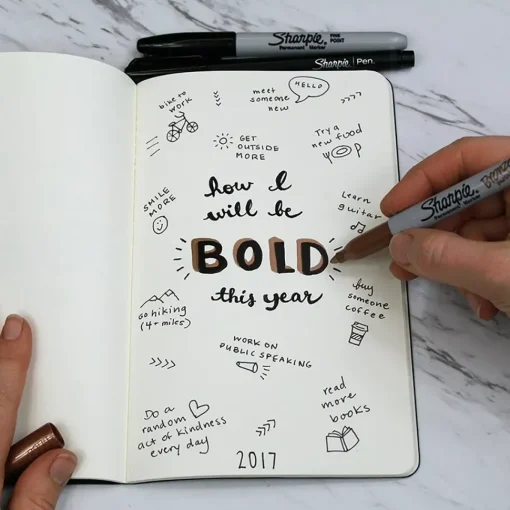 Sharpie
Permanent Marker
FINE
POINT
Sharpie Pen.
bike to
work
meet
someone
new
HELLO
GET
OUTSIDE
MORE
Try a
new food
SMILE
MORE
how I
will be
BOLD
this year
Learn
guitar
Sharpie
Permanent Marker
Bronze
go hiking
(4+ miles)
buy
someone
coffee
WORK ON
PUBLIC SPEAKING
Do a
random
act of kindness
every day
read
more
books
2017